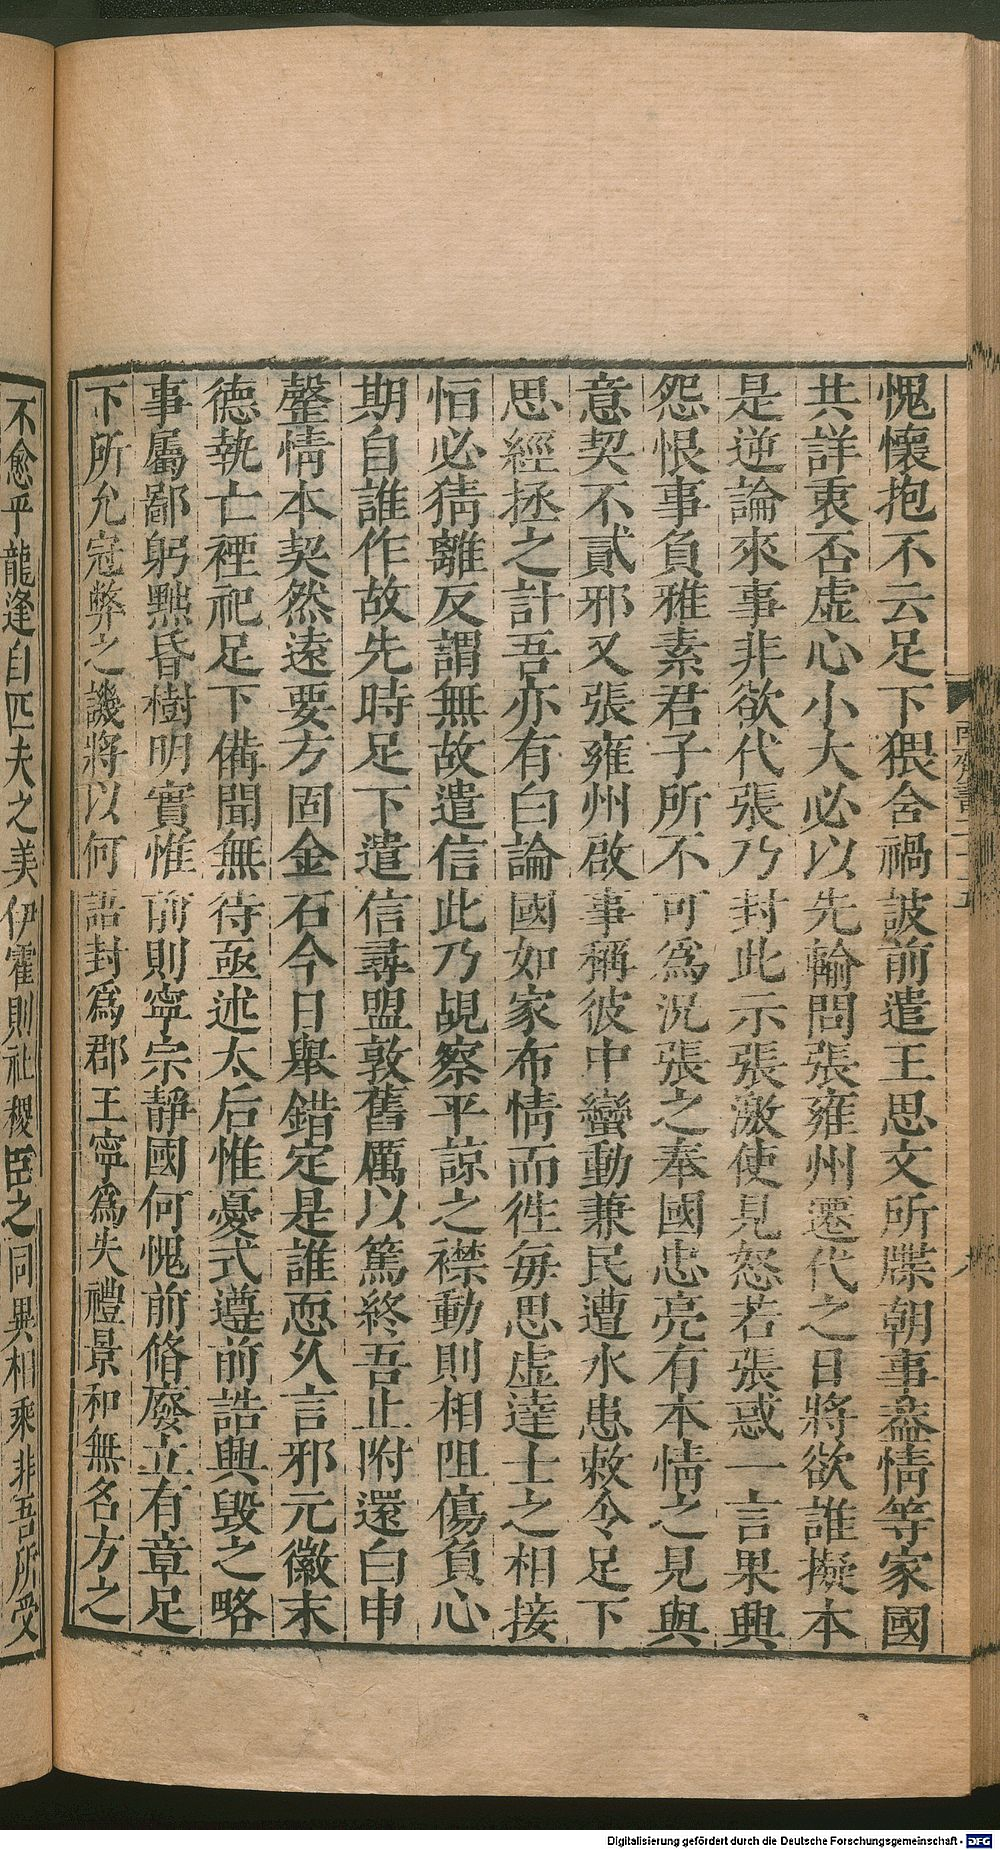 愧懷抱不云足下猥含禍詖前遣王思文所牒朝事葢情等家國
共詳衷否虛心小大必以先輸問張雍州遷代之日將欲誰擬本
是逆論來事非欲代張乃封此示張激使見怒若張惑一言果興
怨恨事負雅素君子所不可爲況張之奉國忠亮有本情之見與
意契不貳邪又張雍州啟事稱彼中蠻動兼民遭水患敕令足下
思經拯之計吾亦有白論國如家布情而徃每思虛達士之相接
恒必猜離反謂無故遣信此乃覘察平諒之襟動則相阻傷負心
期自誰作故先時足下遣信尋盟敦舊厲以篤終吾止附還白申
罄情本契然遠要方固金石今日舉錯定是誰恧久言邪元徽末
德執亡禋祀足下備聞無待亟述太后惟憂式遵前誥興毀之略
事屬鄙躬黜昏樹明實惟前則寧宗靜國何愧前脩廢立有章足
下所允冠弊之譏將以何語封爲郡王寧爲失禮景和無名方之
不愈乎龍逢自匹夫之美伊霍則社稷臣之同異相乘非吾所受
南齊書二十五
八
Digitalisierung gefördert durch die Deutsche Forschungsgemeinschaft - DFG